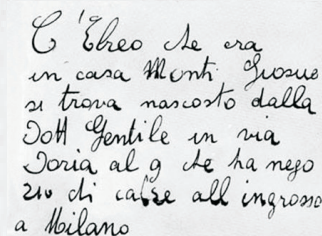 L'Ebreo che era
in casa Monti Giosue
si trova nascosto dalla
Dott Gentile in via
Doria al 9 che ha nego
zio di calze all ingrosso
a Milano